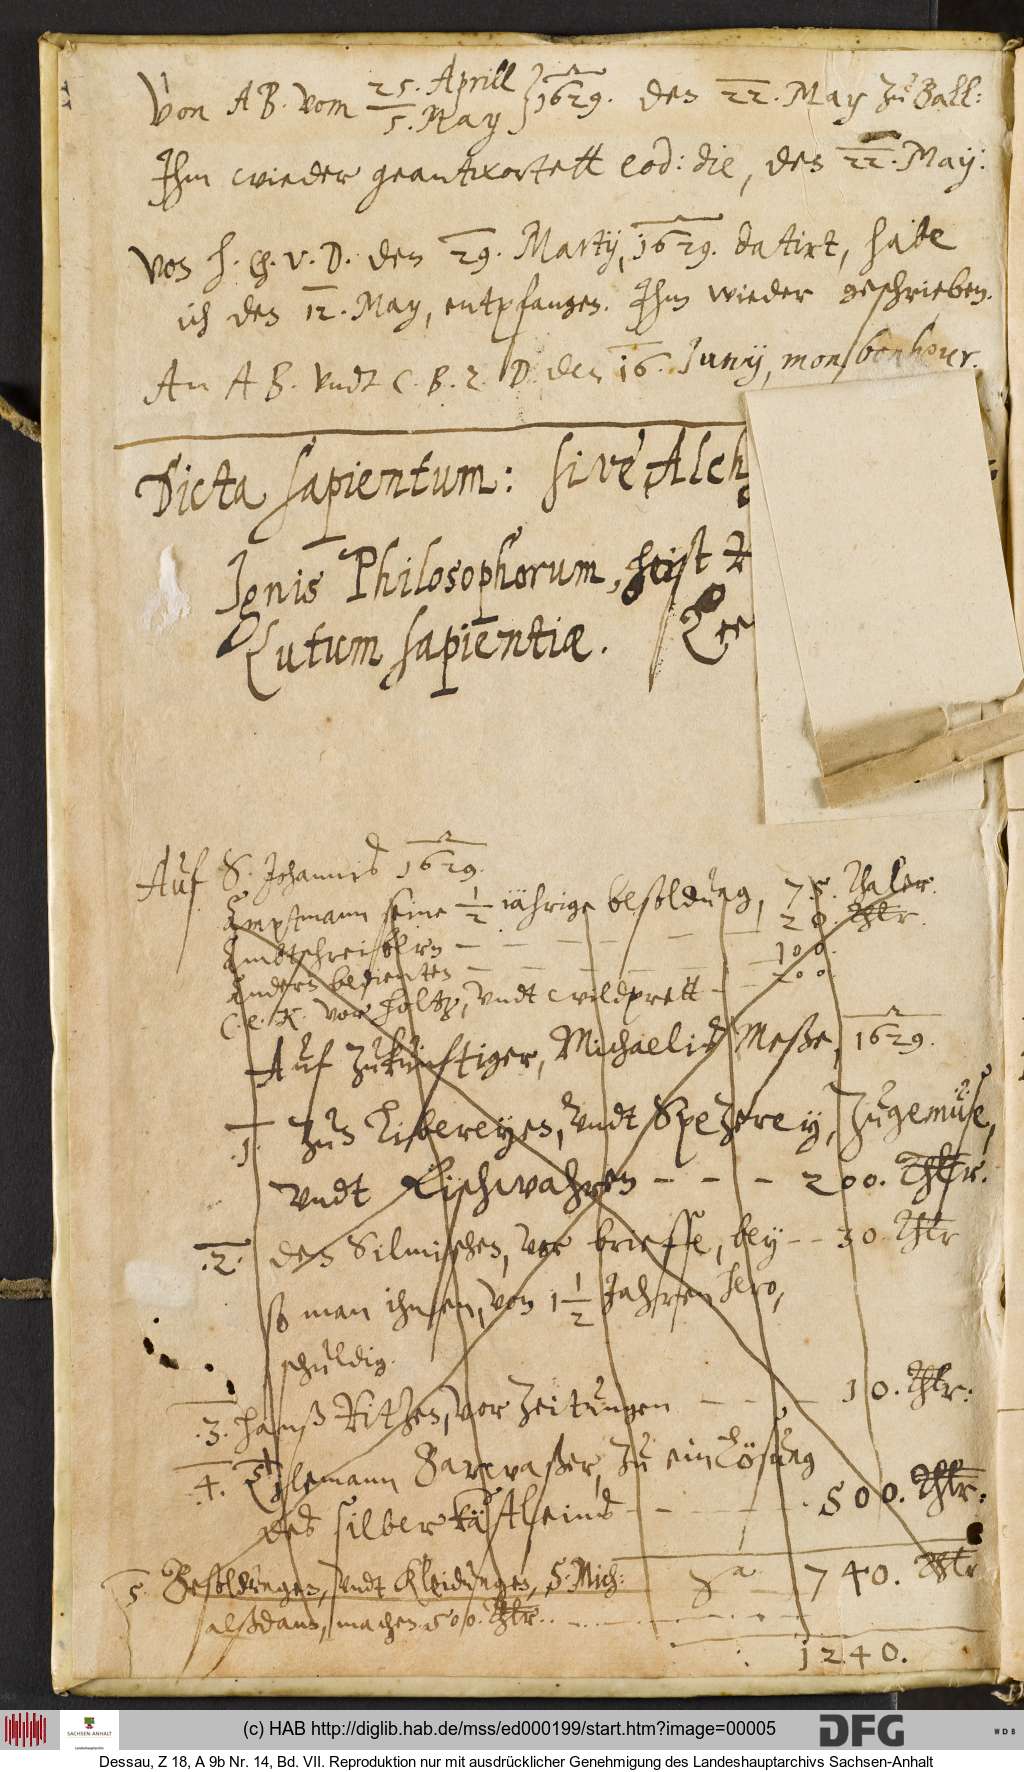 Von AB. vom 25. Aprill / 5. May } 1629. den 22. May zu Ball:
Ihm wieder geantwortett eod: die, den 22. May:
Von H. Ch. v. D. den 29. Martij, 1629. datirt, habe
ich den 12. May, entpfangen. Ihm wieder geschrieben.
An AB. vndt C. B. z. D. den 16. Junij, mon bonheur.
Dicta sapientum: sive Alch
Ignis Philosophorum, heist
Lutum sapientiæ.
Auf S. Johannis 1629.
Ampftmann seine 1/2 iährige besoldung, 75. Thaler.
Ambtschreibern – – – – – – 20. Thlr.
Andern bedienten – – – – – – 100.
C. C. K. vor holtz, vndt wildprett – – 200.
Auf zukünftiger, Michaelis Meße, 1629.
.1. Zun Libereyen, vndt Spezerey, Zugemüse,
vndt Fischwahren – – – 200. Thlr.
.2. den Silmischen, vor brieffe, bey – – 30. Thlr
so man ihnen, von 1 1/2 Jahren hero,
schuldig.
.3. Hanß Ritzen, vor Zeitungen – – – 10. Thlr:
.4. Thilemann Barwaßer, zu einlösung
des silberkästleins – – – – 500. Thlr:
5. Besoldungen, vndt Kleidungen, S. Mich: Sa. 740. Thlr
alßdann, machen 500. Thlr. – – – –
1240.
(c) HAB http://diglib.hab.de/mss/ed000199/start.htm?image=00005
SACHSEN-ANHALT
Landeshauptarchiv
DFG
WDB
Dessau, Z 18, A 9b Nr. 14, Bd. VII. Reproduktion nur mit ausdrücklicher Genehmigung des Landeshauptarchivs Sachsen-Anhalt